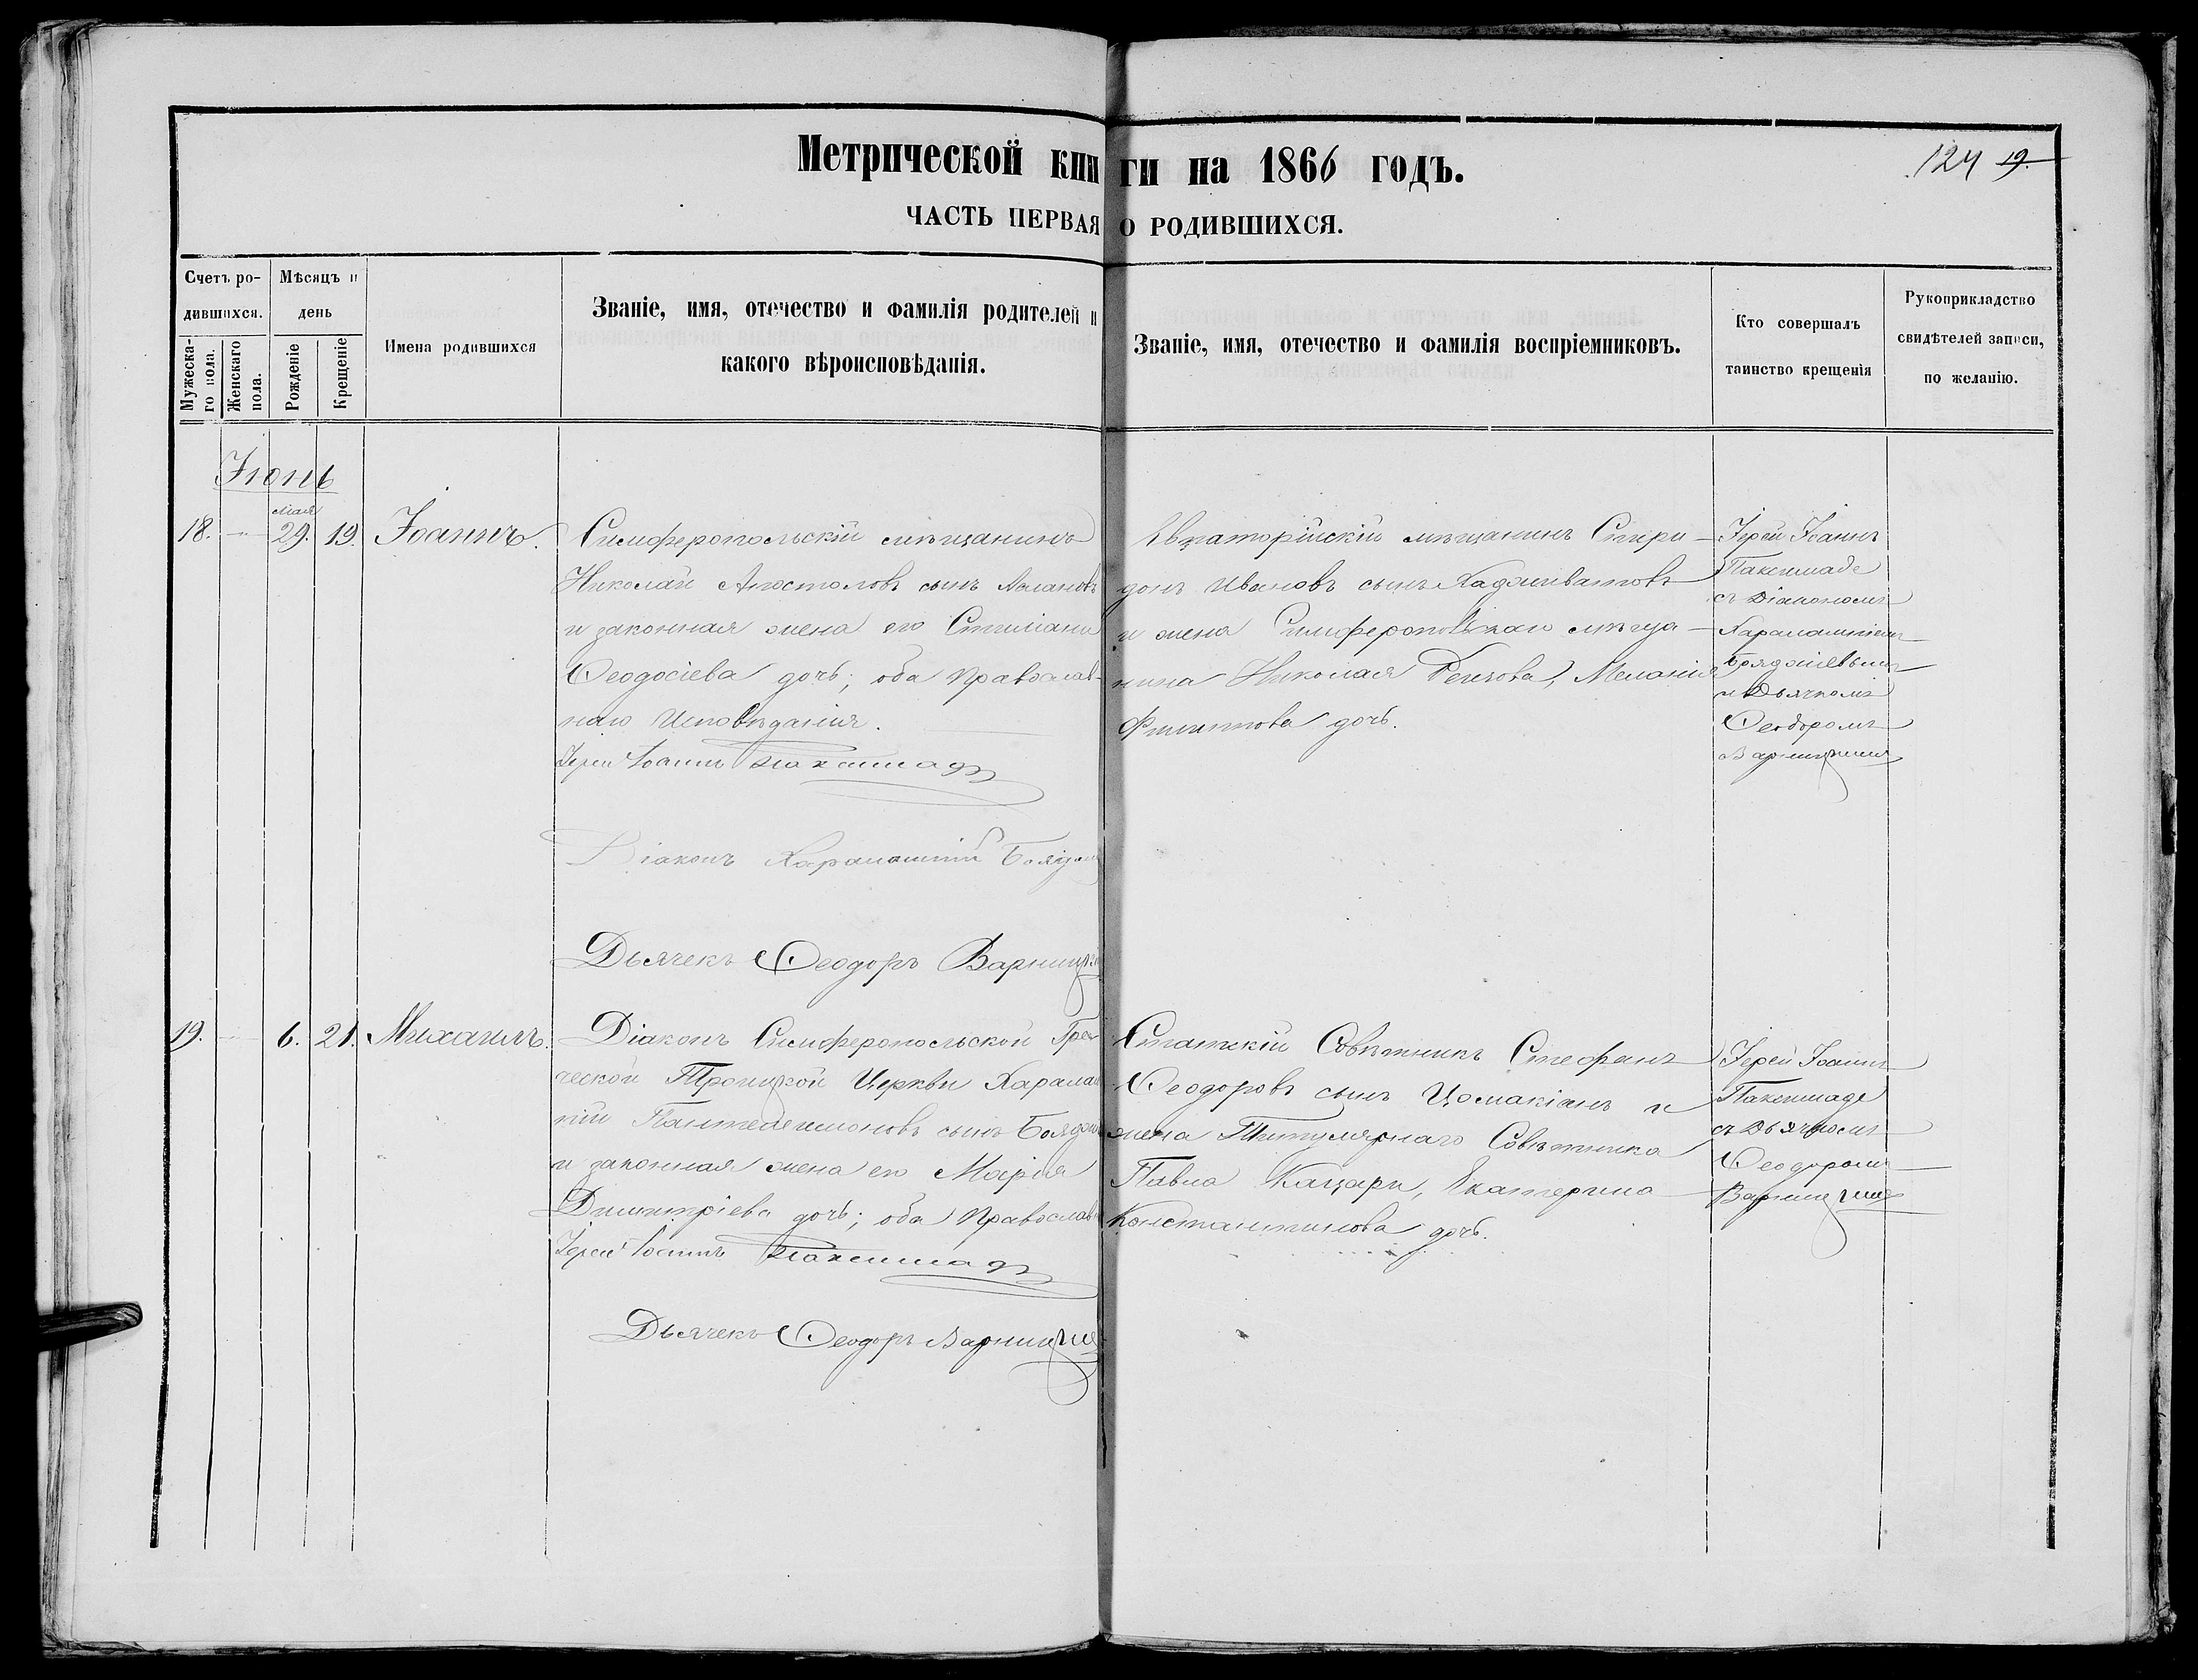 Метрической книги на 1866 годъ.
124 19.
ЧАСТЬ ПЕРВАЯ О РОДИВШИХСЯ.
Счетъ родившихся.
Мужескаго пола.
Женскаго пола.
Мѣсяцъ и день
Рожденіе
Крещеніе
Имена родившихся
Званіе, имя, отечество и фамилія родителей и
какого вѣроисповѣданія.
Званіе, имя, отечество и фамилія воспріемниковъ.
Кто совершалъ
таинство крещенія
Рукоприкладство
свидѣтелей записи,
по желанію.
Іюнь
18. — Мая 29. 19. Іоаннъ.
Симферопольскій мѣщанинъ
Николай Апостоловъ сынъ
и законная жена его Стиліана
Ѳеодосіева дочь; оба Православ-
наго Исповѣданія.
Іерей Іоаннъ Паксимаде
Діаконъ Харалампій
Дьячекъ Ѳеодоръ
Евпаторійскій мѣщанинъ Спири-
донъ Ивановъ сынъ
и жена Симферопольскаго мѣща-
нина Николая Меланія
Филиппова дочь.
Іерей Іоаннъ
Паксимаде
съ Діакономъ
Харалампіемъ
и Дьячкомъ
Ѳеодоромъ
19. — 6. 21. Михаилъ.
Діаконъ Симферопольской Гре-
ческой Троицкой Церкви Харалам
пій Пантелеимоновъ сынъ
и законная жена его Марія
Димитріева дочь; оба Православн
Іерей Іоаннъ Паксимаде
Дьячекъ Ѳеодоръ
Статскій Совѣтникъ Стефанъ
Ѳеодоровъ сынъ Цомакіанъ и
жена Титулярнаго Совѣтника
Павла Кацари, Екатерина
Константинова дочь.
Іерей Іоаннъ
Паксимаде
съ Дьячкомъ
Ѳеодоромъ